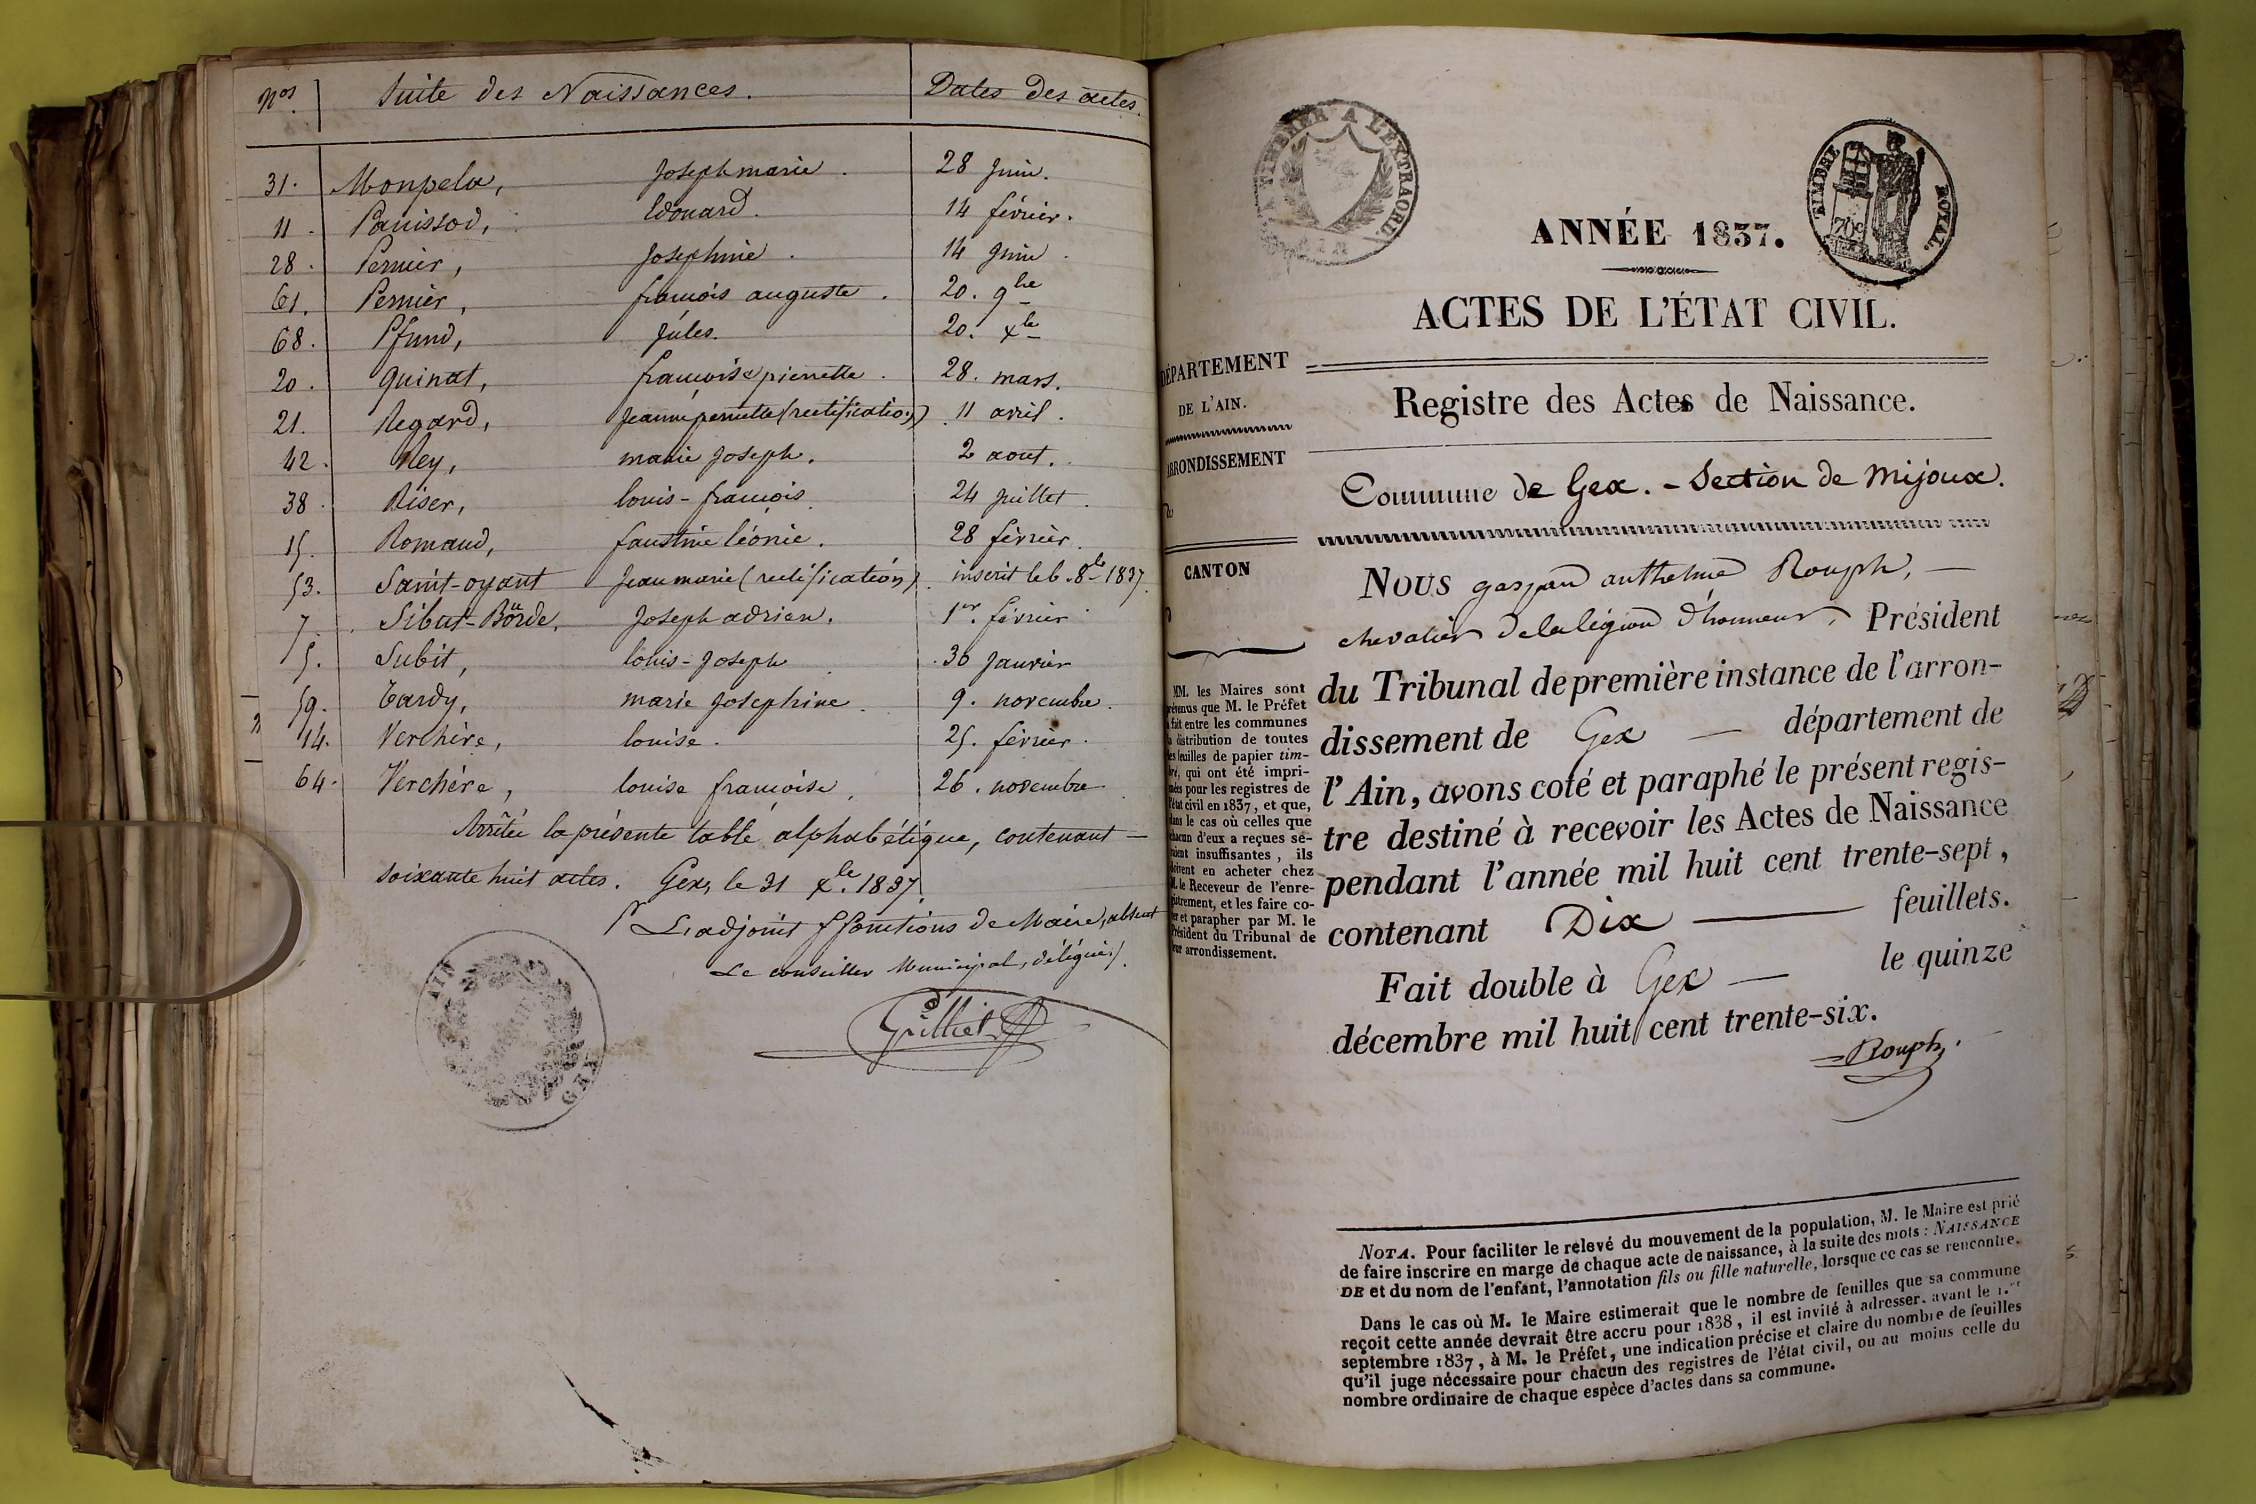 Nos Suite des Naissances. Dates des actes.
31. Monpela, Joseph marie. 28 Juin.
11. Panissod, Edouard. 14 février.
28. Pernier, Josephine. 14 Juin.
61. Pernier, françois auguste. 20. 9bre
68. Pfund, Jules. 20. xbre
20. Quinat, françoise pierrette. 28. mars.
21. Regard, Jeanne pernette (rectification) 11 avril.
42. Rey, marie Joseph. 2 aout.
38. Riser, louis-françois 24 Juillet.
15. Romand, faustine léonie. 28 février.
53. Saint-oyant Jean marie (rectification). inscrit le 6. 8bre 1837.
7. Sibut-Börde, Joseph adrien. 1er. février
5. Subit, louis-Joseph 30 Janvier
59. Tardy, marie Josephine. 9. novembre.
14. Verchère, louise. 25. février.
64. Verchère, louise françoise. 26. novembre
Arrêtée la présente table alphabétique, contenant —
soixante huit actes. Gex, le 31 xbre. 1837.
Pr L'adjoint ff fonctions de Maire, absent
Le conseiller Municipal, délégué,
Guilliet
AIN
GEX
TIMBRER A L'EXTRAORD.
TIMBRE ROYAL.
70c
ANNÉE 1837.
ACTES DE L'ÉTAT CIVIL.
DÉPARTEMENT
DE L'AIN.
Registre des Actes de Naissance.
ARRONDISSEMENT
Commune de Gex. - Section de Mijoux.
CANTON
Nous gaspard anthelme Rouph, —
chevalier de la légion d'honneur, Président
du Tribunal de première instance de l'arron-
dissement de Gex — département de
l'Ain, avons coté et paraphé le présent regis-
tre destiné à recevoir les Actes de Naissance
pendant l'année mil huit cent trente-sept,
contenant Dix — feuillets.
Fait double à Gex — le quinze
décembre mil huit cent trente-six.
Rouph
MM. les Maires sont
prévenus que M. le Préfet
a fait entre les communes
la distribution de toutes
les feuilles de papier tim-
bré, qui ont été impri-
mées pour les registres de
l'état civil en 1837, et que,
dans le cas où celles que
chacun d'eux a reçues se-
raient insuffisantes, ils
doivent en acheter chez
M. le Receveur de l'enre-
gistrement, et les faire co-
ter et parapher par M. le
Président du Tribunal de
leur arrondissement.
NOTA. Pour faciliter le relevé du mouvement de la population, M. le Maire est prié
de faire inscrire en marge de chaque acte de naissance, à la suite des mots : NAISSANCE
DE et du nom de l'enfant, l'annotation fils ou fille naturelle, lorsque ce cas se rencontre.
Dans le cas où M. le Maire estimerait que le nombre de feuilles que sa commune
reçoit cette année devrait être accru pour 1838, il est invité à adresser, avant le 1.er
septembre 1837, à M. le Préfet, une indication précise et claire du nombre de feuilles
qu'il juge nécessaire pour chacun des registres de l'état civil, ou au moins celle du
nombre ordinaire de chaque espèce d'actes dans sa commune.